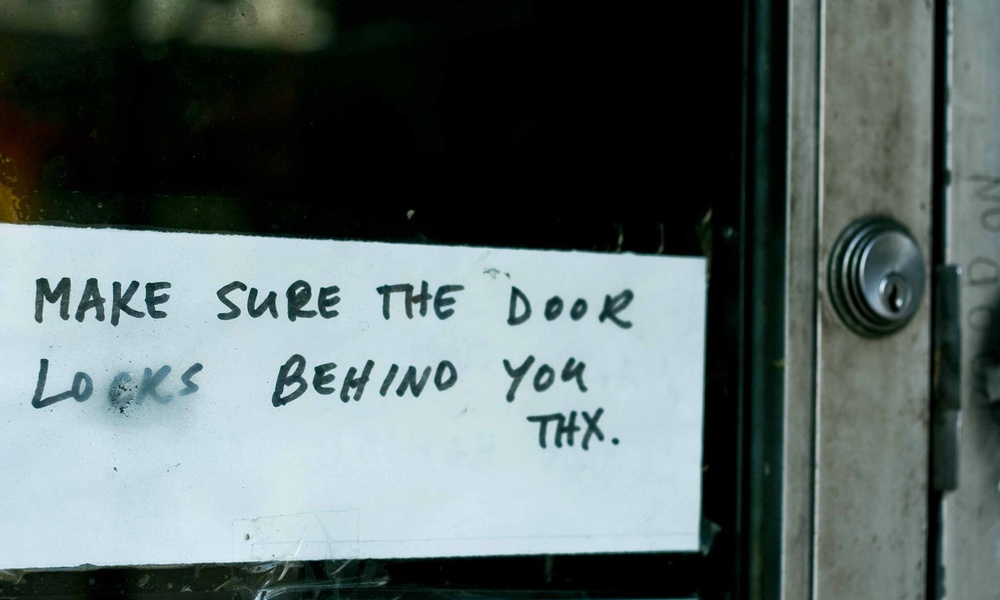 MAKE SURE THE DOOR
LOCKS BEHIND YOU
THX.